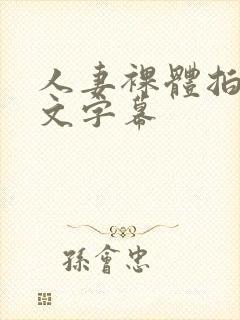 人妻裸體拍
文字幕
孫會忠